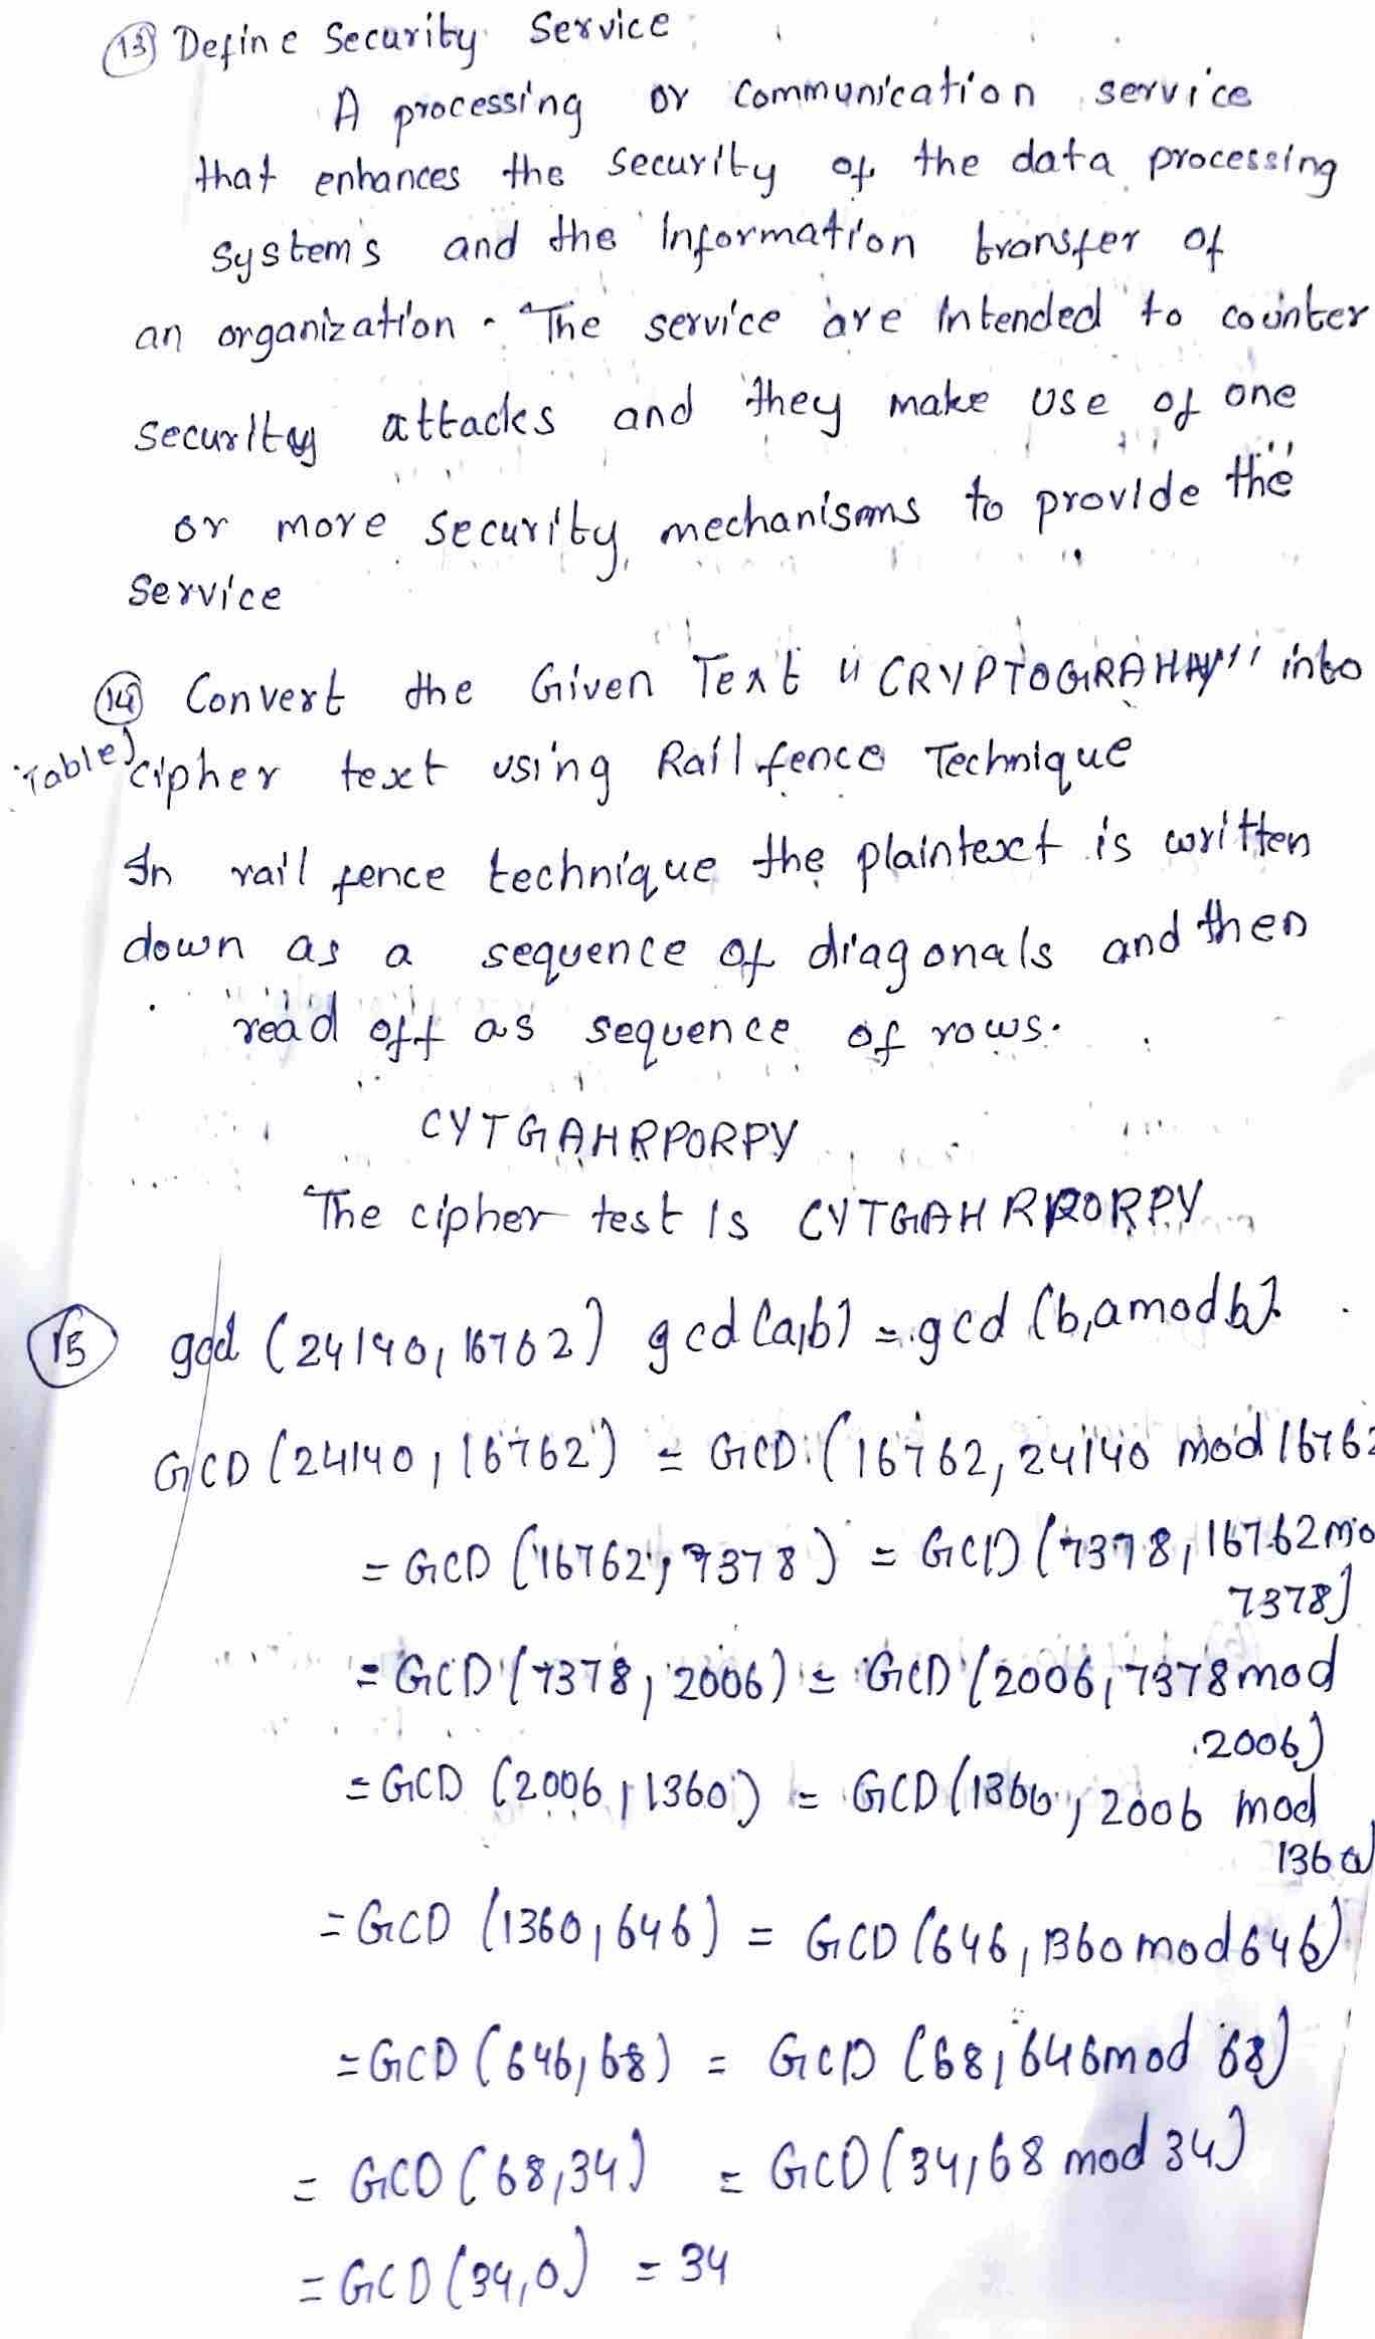 13 Define Security Service
A processing or communication service
that enhances the security of the data processing
systems and the Information transfer of
an organization. The service are intended to counter
security attacks and they make use of one
or more security mechanisms to provide the
Service
14 Convert the Given Text "CRYPTOGRAHHY" into
Table) cipher text using Rail fence Technique
In rail fence technique the plaintext is written
down as a sequence of diagonals and then
read off as sequence of rows.
CYTGAHRPORPY
The cipher test is CYTGAHRPORPY
15 gcd (24140, 16762) gcd (a,b) = gcd (b, a mod b)
GCD (24140, 16762) = GCD (16762, 24140 mod 16762
= GCD (16762, 7378) = GCD (7378, 16762 mo
7378)
= GCD (7378, 2006) = GCD (2006, 7378 mod
2006)
= GCD (2006, 1360) = GCD (1360, 2006 mod
1360)
= GCD (1360, 646) = GCD (646, 1360 mod 646)
= GCD (646, 68) = GCD (68, 646 mod 68)
= GCD (68, 34) = GCD (34, 68 mod 34)
= GCD (34, 0) = 34